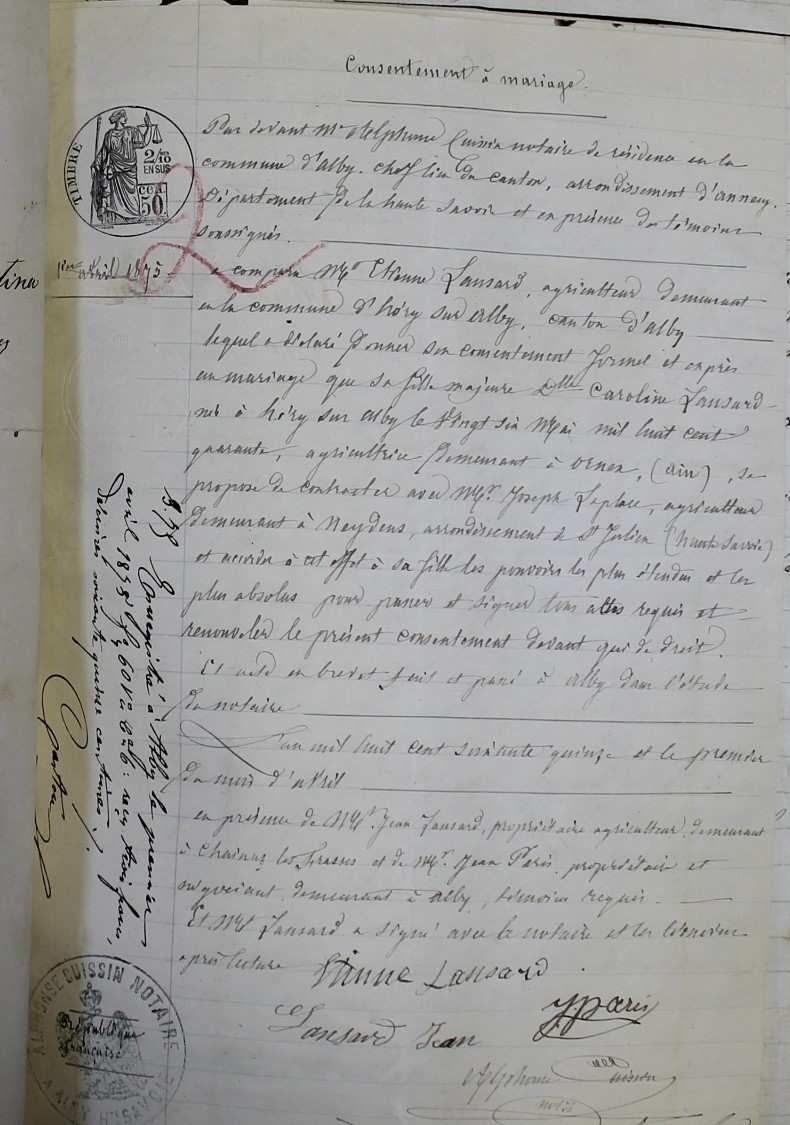 Consentement à mariage.
Par devant Me Alphonse Cuissin notaire de résidence en la
commune d'Alby, chef lieu de canton, arrondissement d'Annecy,
Département de la haute Savoie et en présence des témoins
soussignés.
TIMBRE
2/10
EN SUS
50c
1er avril 1875
a comparu Mr Etienne Lansard, agriculteur demeurant
en la commune d'héry sur Alby, canton d'Alby
lequel a déclaré donner son consentement formel et exprès
au mariage que sa fille majeure Dlle Caroline Lansard
née à héry sur Alby le Vingt six Mai mil huit cent
quarante, agricultrice demeurant à Ornex, (Ain), se
propose de contracter avec Mr. Joseph Laplace, agriculteur
demeurant à Neydens, arrondissement de St Julien (haute Savoie)
et accorder à cet effet à sa fille les pouvoirs les plus étendus et les
plus absolus pour passer et signer tous actes requis et
renouveler le présent consentement devant qui de droit.
Et acte en brevet fait et passé à Alby dans l'étude
du notaire
L'an mil huit cent soixante quinze et le premier
du mois d'avril
en présence de Mrs. Jean Lansard, propriétaire agriculteur, demeurant
à Chainaz les Frasses et de Mr. Jean Paris, propriétaire et
négociant, demeurant à Alby, témoins requis.
Et Mr Lansard a signé avec le notaire et les témoins
après lecture
Etienne Lansard
J Paris
Lansard Jean
Alphonse Cuissin
notre
Enregistré à Alby le premier
avril 1875 fo 60 Vo : reçu trois francs,
soixante quinze centimes
ALPHONSE CUISSIN NOTAIRE
République
Française
A ALBY HTE SAVOIE